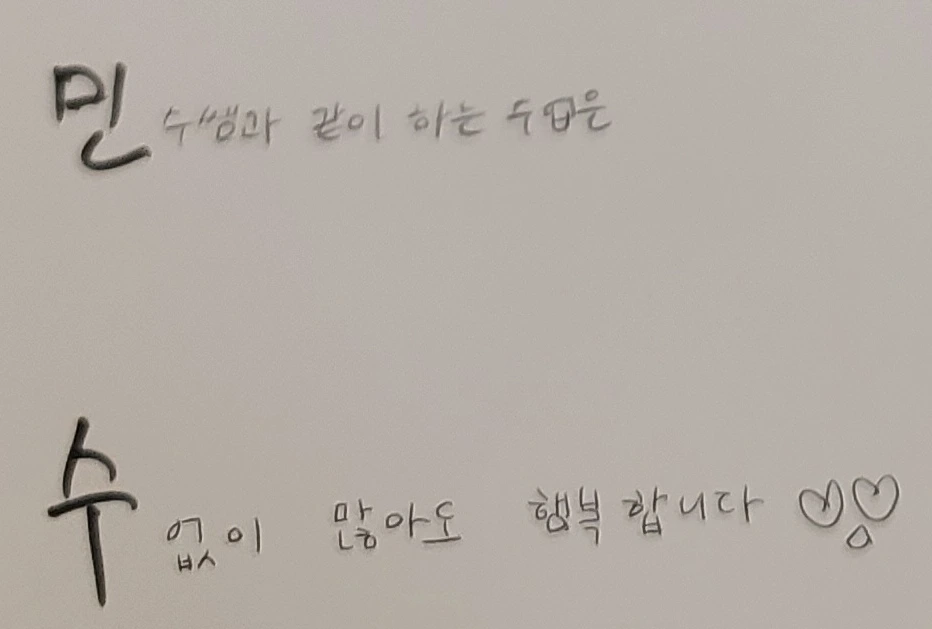 민수쌤과 같이 하는 수업은
수없이 많아도 행복합니다